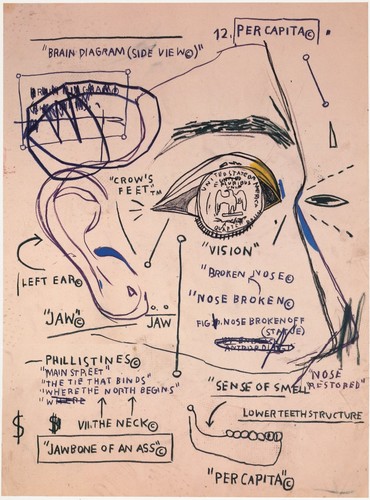 12. PER CAPITA©
"BRAIN DIAGRAM (SIDE VIEW©)"
"CROW'S
FEET"TM
UNITED STATES OF AMERICA
E PLURIBUS
QUARTER
"VISION"
LEFT EAR©
"BROKEN NOSE©
"NOSE BROKEN©
FIG. NOSE BROKEN OFF
(STATUE)
"JAW"©
JAW
PHILLISTINES©
"MAIN STREET"
"THE TIE THAT BINDS"
"WHERE THE NORTH BEGINS"
"WHERE
"NOSE
RESTORED"
"SENSE OF SMELL"
LOWER TEETH STRUCTURE
$ $ VII. THE NECK©
"JAWBONE OF AN ASS"©
"PER CAPITA"©